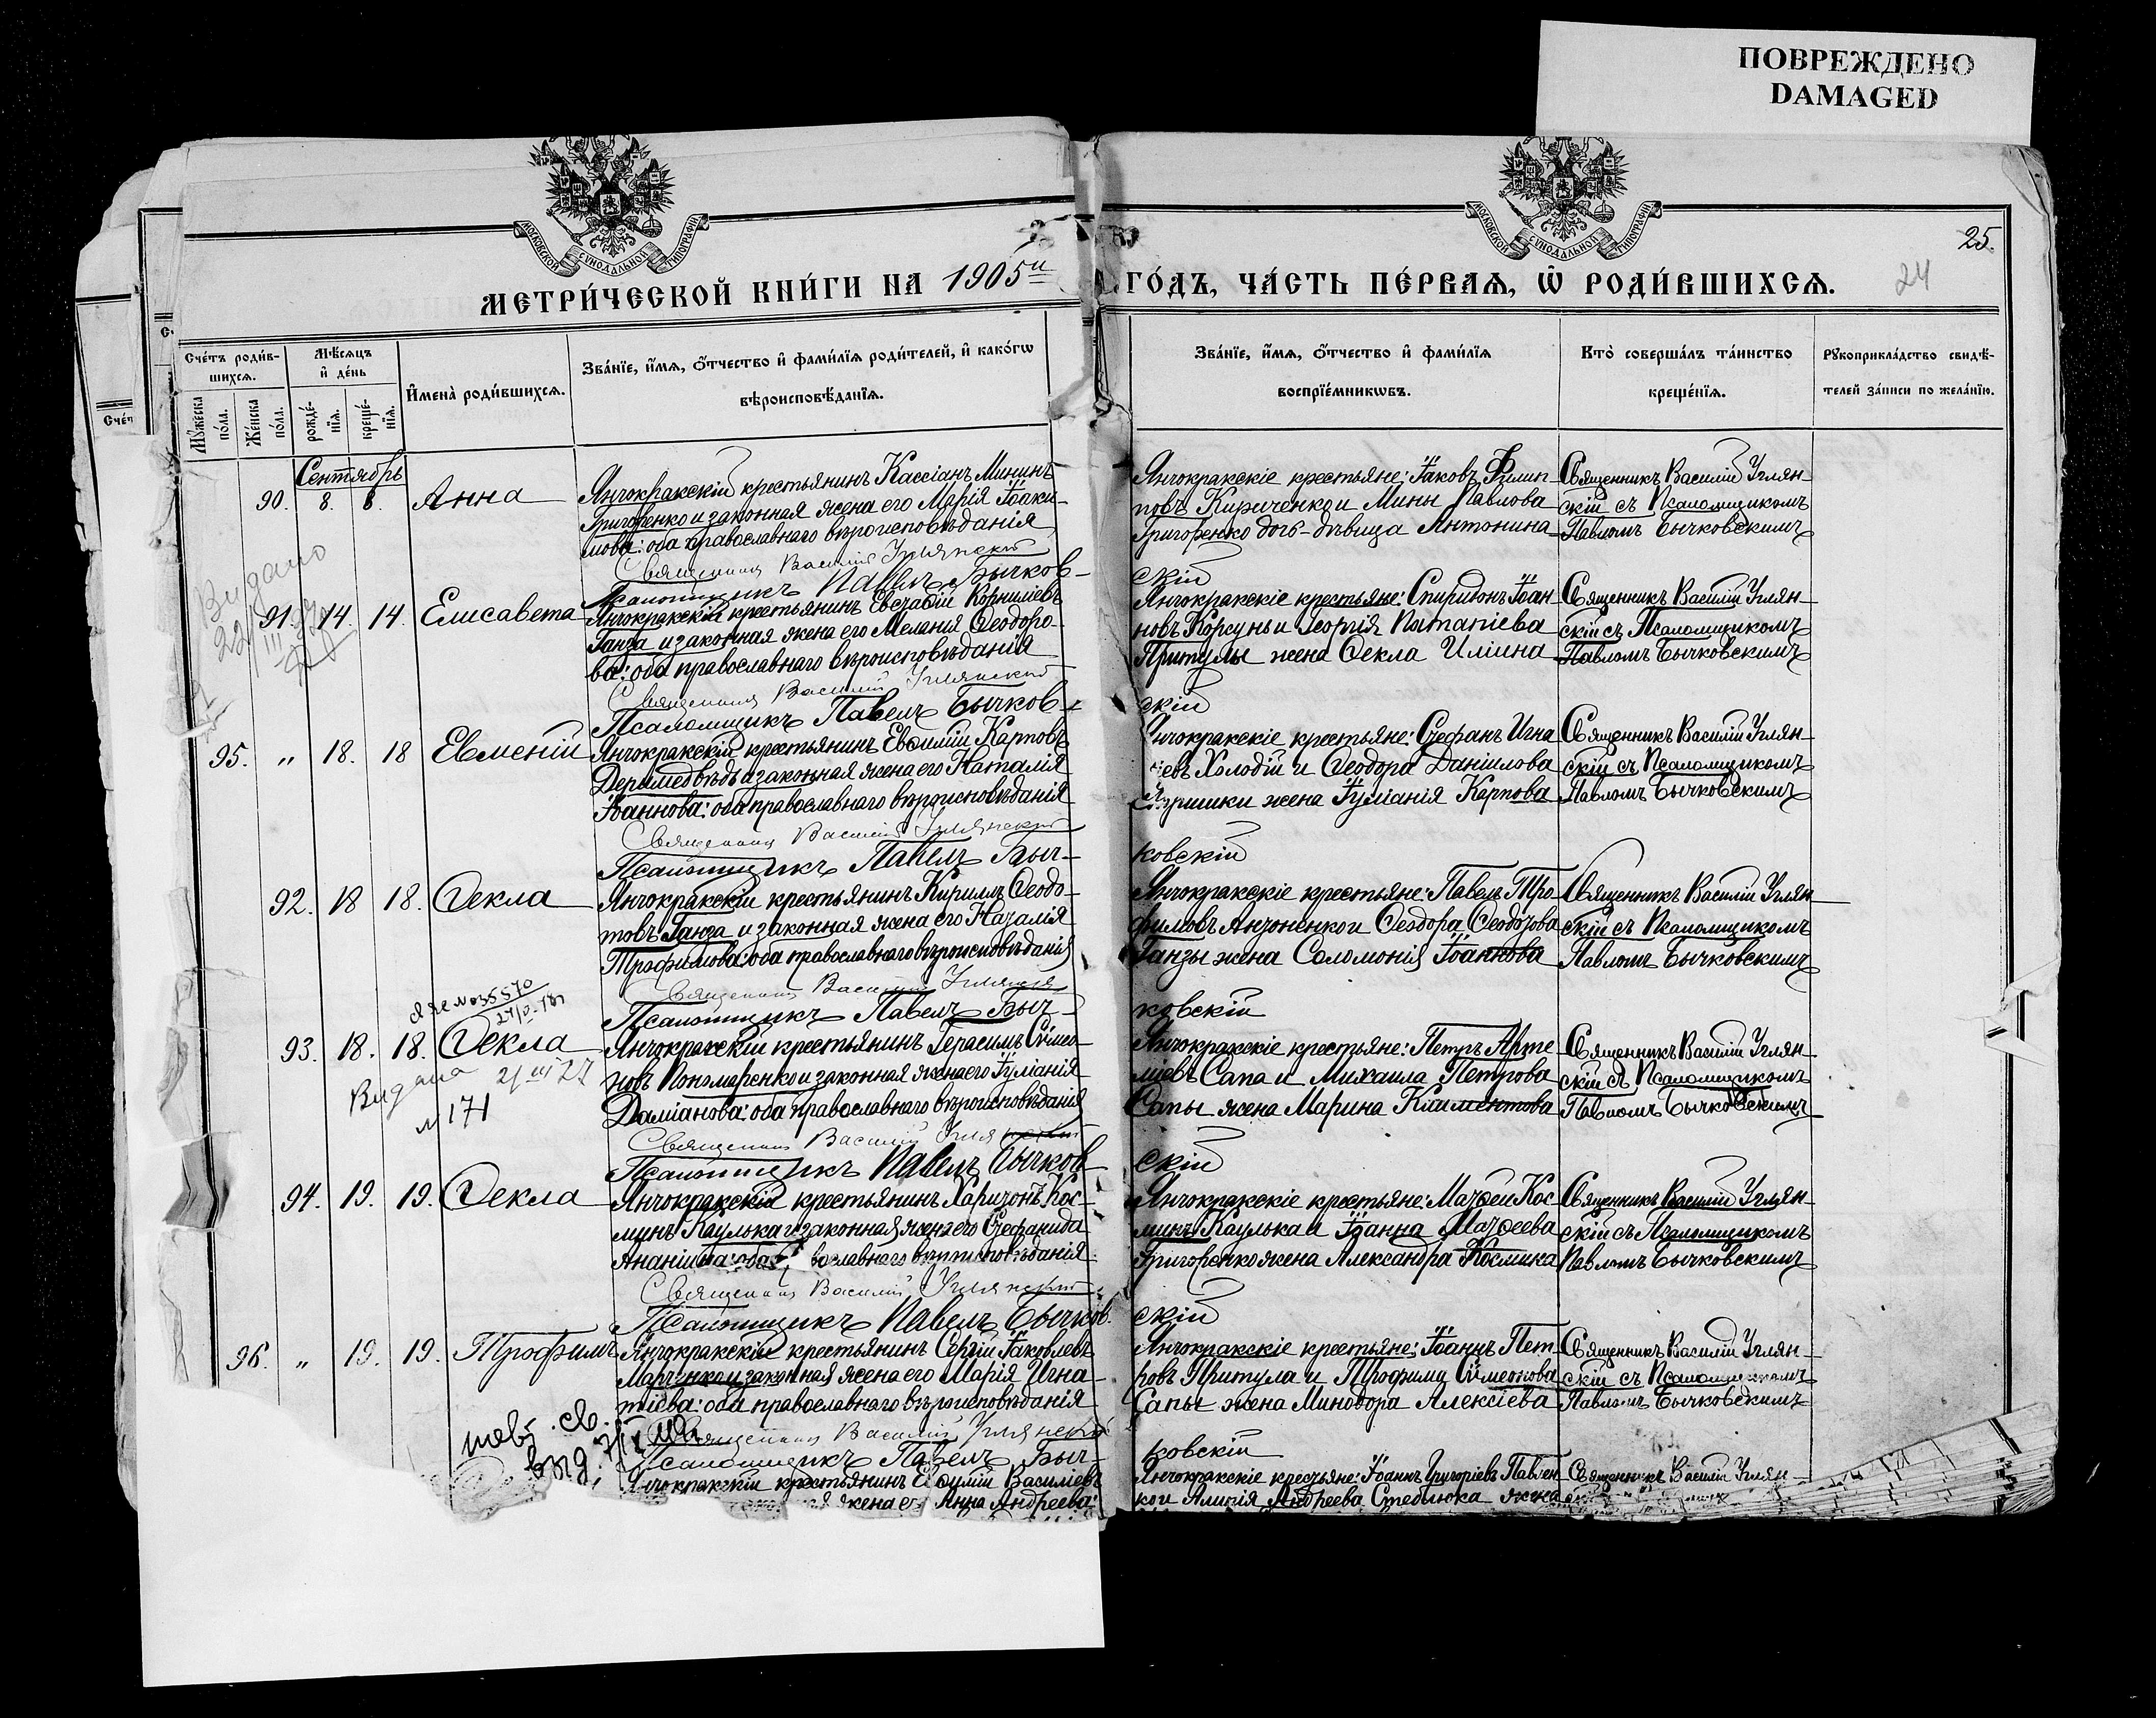 ПОВРЕЖДЕНО
DAMAGED
МОСКОВСКОЙ СУНОДАЛЬНОЙ ТИПОГРАФІИ
МОСКОВСКОЙ СУНОДАЛЬНОЙ ТИПОГРАФІИ
25.
24
МЕТРИ́ЧЕСКОЙ КНИ́ГИ НА 1905й ГО́ДЪ, ЧА́СТЬ ПЕ́РВАѦ, Ѿ РОДИ́ВШИХСѦ.
Сче́тъ роди́в-
шихсѧ.
Мꙋ́жеска по́ла.
Же́нска по́ла.
Мѣ́сѧцъ и де́нь
рожде́-нїѧ.
креще́-нїѧ.
И҆мена̀ роди́вшихсѧ.
Зва́нїе, и҆́мѧ, ѻ҆́тчество и҆ фами́лїѧ роди́телей, и҆ како́гѡ
вѣроисповѣ́данїѧ.
Зва́нїе, и҆́мѧ, ѻ҆́тчество и҆ фами́лїѧ
воспрїе́мникѡвъ.
Кто̀ соверша́лъ та́инство
креще́нїѧ.
Рꙋкоприкла́дство свидѣ́-
телей за́писи по жела́нїю.
Сентябрь
90. 8. 8. Анна
Янчокракскій крестьянинъ Кассіанъ Мининъ
Григоренко и законная жена его Марія Іоаки-
мова: оба православнаго вѣроисповѣданія
Священникъ Василій Углянскій
Псаломщикъ Павелъ Бычков-
скій
Янчокракскіе крестьяне: Іаковъ Филип-
повъ Кириченко и Мины Павлова
Григоренко дочь-дѣвица Антонина
Священникъ Василій Углян-
скій съ Псаломщикомъ
Павломъ Бычковскимъ
Видано
91. 14. 14. Елисавета
Янчокракскій крестьянинъ Евстафій Корнилиевъ
Ганза и законная жена его Мелания Ѳеодоро-
ва: оба православнаго вѣроисповѣданія
Священникъ Василій Углянскій
Псаломщикъ Павелъ Бычков-
скій
Янчокракскіе крестьяне: Спиридонъ Іоан-
новъ Корсунь и Георгія Патапіева
Притулы жена Ѳекла Иліина
Священникъ Василій Углян-
скій съ Псаломщикомъ
Павломъ Бычковскимъ
95. „ 18. 18 Евменій
Янчокракскій крестьянинъ Евѳимій Карповъ
Деримедвѣдь и законная жена его Наталія
Іоаннова: оба православнаго вѣроисповѣданія
Священникъ Василій Углянскій
Псаломщикъ Павелъ Быч-
ковскій
Янчокракскіе крестьяне: Стефанъ Игна
Холодій и Ѳеодора Даніилова
жена Іуліанія Карпова
Священникъ Василій Углян-
скій съ Псаломщикомъ
Павломъ Бычковскимъ
92. 18 18. Ѳекла
Янчокракскій крестьянинъ Кириллъ Ѳеодо-
товъ Ганза и законная жена его Наталія
Трофимова: оба православнаго вѣроисповѣданія
Священникъ Василій Углянскій
Псаломщикъ Павелъ Быч-
ковскій
Янчокракскіе крестьяне: Павелъ Тро-
фимовъ Антоненко и Ѳеодора Ѳеодотова
Ганзы жена Соломонія Іоаннова
Священникъ Василій Углян
скій съ Псаломщикомъ
Павломъ Бычковскимъ
93. 18. 18. Ѳекла
Видана 21 III 27
№ 171
Янчокракскій крестьянинъ Герасимъ Сѵмео-
новъ Пономаренко и законная жена его Іуліанія
Даміанова: оба православнаго вѣроисповѣданія
Священникъ Василій Углянскій
Псаломщикъ Павелъ Бычков-
скій
Янчокракскіе крестьяне: Петръ Арте-
міевъ Сапа и Михаила Петрова
Сапы жена Марина Климентова
Священникъ Василій Углян-
скій съ Псаломщикомъ
Павломъ Бычковскимъ
94. 19. 19. Ѳекла
Янчокракскій крестьянинъ Харитонъ Кос-
минъ Каулька и законная жена его Стефанида
Ананіина: оба вославнаго вѣроисповѣданія
Священникъ Василій Углянскій
Псаломщикъ Павелъ Бычков-
скій
Янчокракскіе крестьяне: Матѳей Кос-
минъ Каулька и Іоанна Матѳеева
Григоренко жена Александра Космина
Священникъ Василій Углян-
скій съ Псаломщикомъ
Павломъ Бычковскимъ
96. „ 19. 19. Трофимъ
Янчокракскій крестьянинъ Сергій Іаковлевъ
Марченко и законная жена его Марія Игна-
тіева: оба православнаго вѣроисповѣданія
Священникъ Василій Углянскій
Псаломщикъ Павелъ Быч-
ковскій
Янчокракскіе крестьяне: Іоаннъ Пет-
ровъ Притула и Трофима Сѵмеонова
Сапы жена Минодора Алексіева
Священникъ Василій Углян-
скій съ Псаломщикомъ
Павломъ Бычковскимъ
Янчокракскій крестьянинъ Евѳимій Василіевъ
жена его Анна Андреева:
Янчокракскіе крестьяне: Іоаннъ Григоріевъ Павлен-
ко и Алипія Андреева Стеблюка жена
Священникъ Василій Углян-